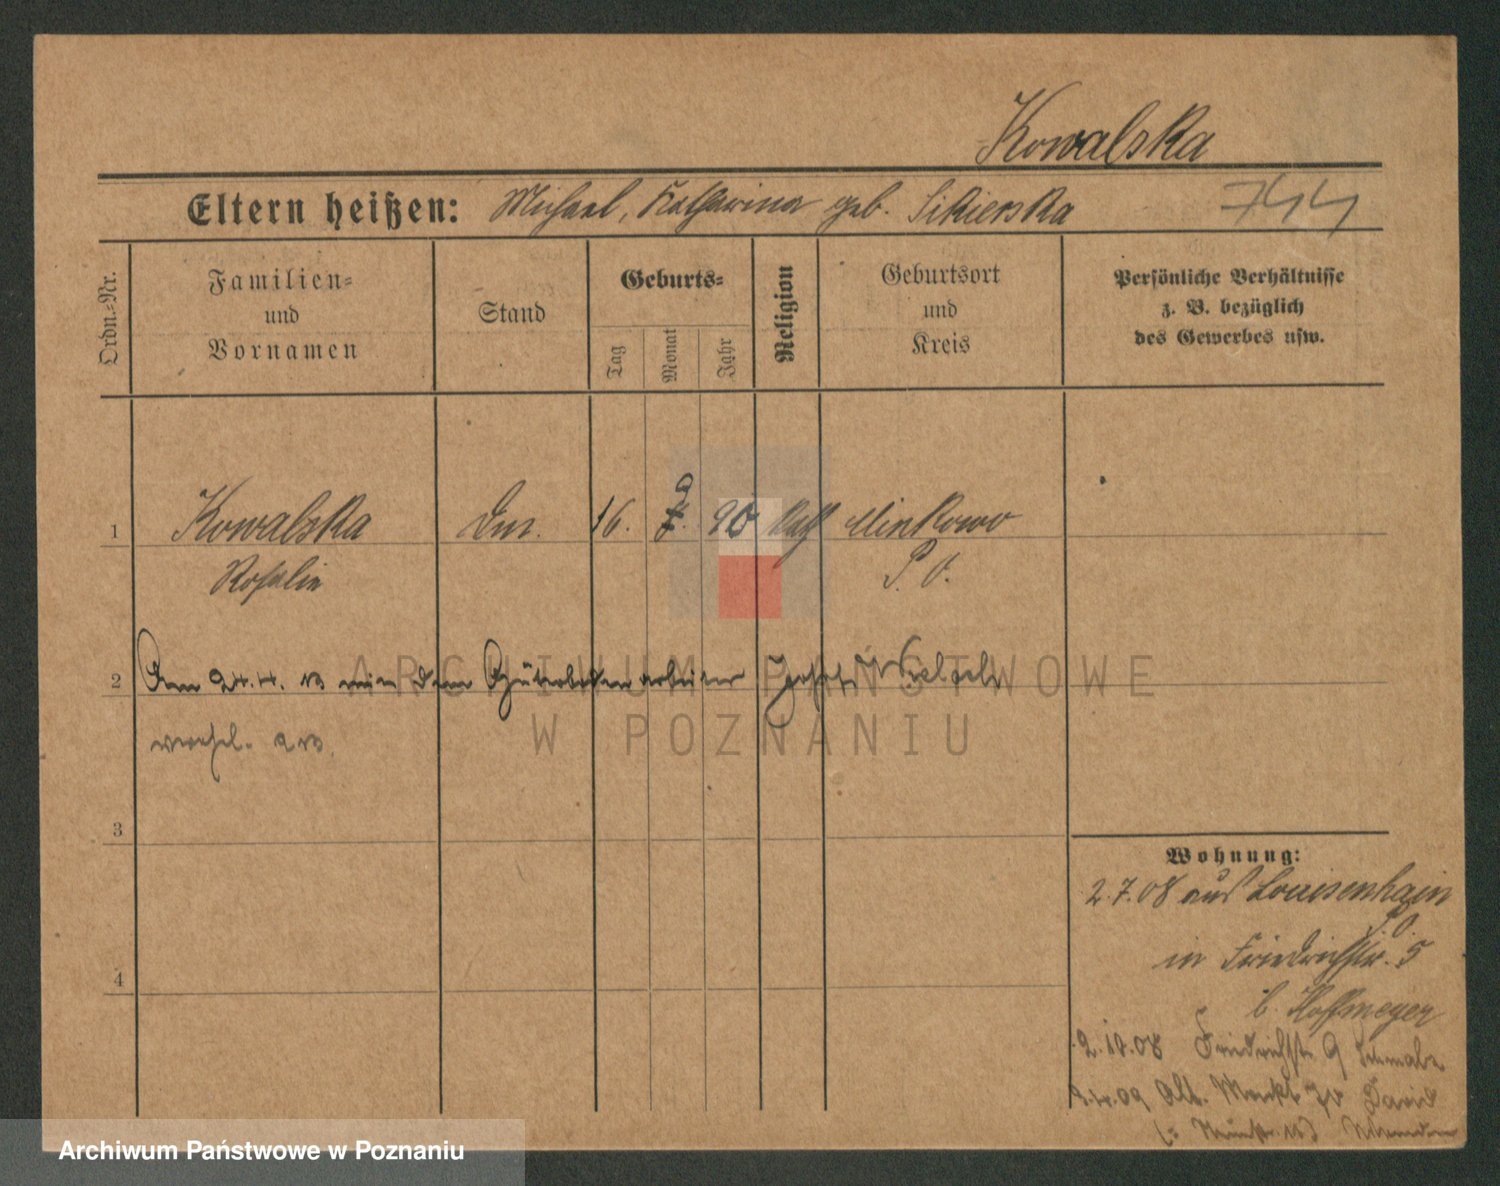 Kowalska
Eltern heißen: Michael, Katharina geb. Sikierska 744
Ordn.-Nr.
Familien-
und
Vornamen
Stand
Geburts-
Tag
Monat
Jahr
Religion
Geburtsort
und
Kreis
Persönliche Verhältnisse
z. B. bezüglich
des Gewerbes usw.
1 Kowalska 16. 9. 90 Kath Minkowo
Rosalie P. O.
2 Am 24.4. mit dem Güterbodenarbeiter Josef
verehel.
3
4
Wohnung:
2.7.08 aus Louisenhain
P. O.
in Friedrichstr. 5
b. Hoffmeyer
2.10.08 Friedrichstr 9
09 Alt. Markt David
ARCHIWUM PAŃSTWOWE
W POZNANIU
Archiwum Państwowe w Poznaniu